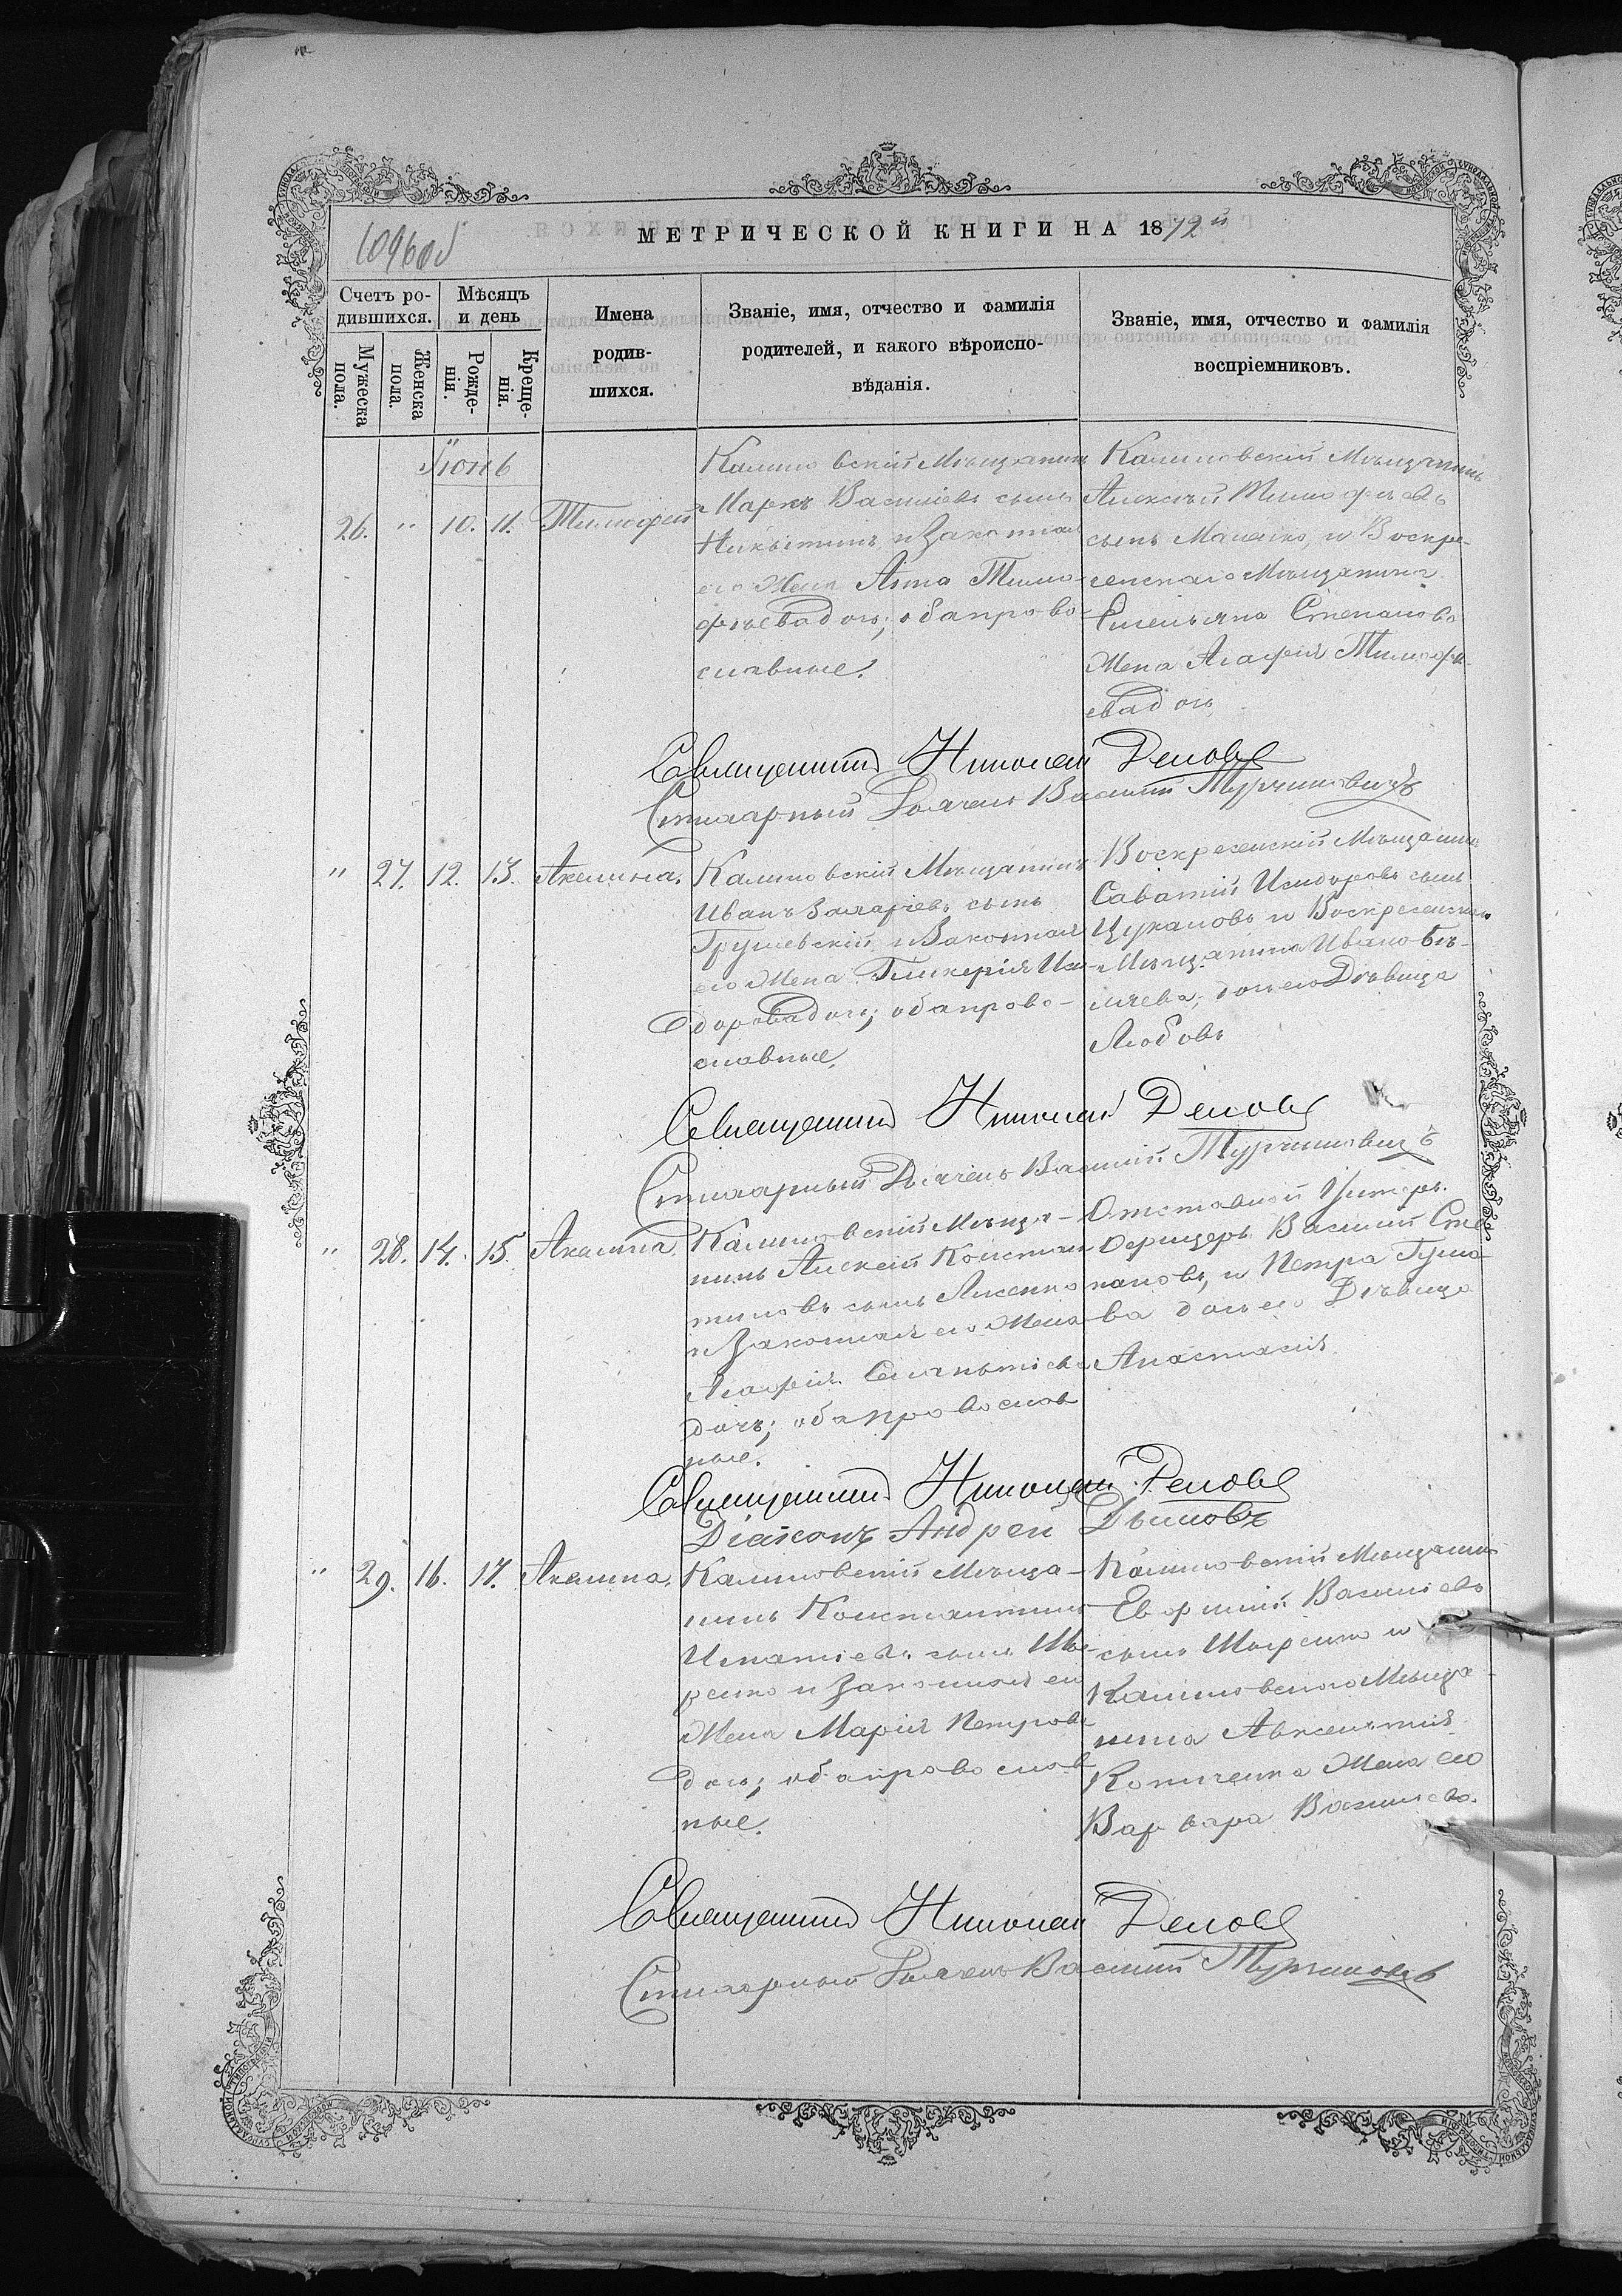 МЕТРИЧЕСКОЙ КНИГИ НА 1872й
Счетъ ро-
дившихся.
Мужеска
пола.
Женска
пола.
Мѣсяцъ
и день
Рожде-
нія.
Креще-
нія.
Имена
родив-
шихся.
Званіе, имя, отчество и фамилія
родителей, и какого вѣроиспо-
вѣданія.
Званіе, имя, отчество и фамилія
воспріемниковъ.
Іюнь
26. " 10. 11. Тимофей
Калиновскій Мѣщанинъ
Маркъ Василіевъ сынъ
Никитинъ и Законная
его Жена Анна Тимо-
фѣева дочь; оба право-
славные.
Калиновскій Мѣщанинъ
Алексѣй Тимофѣевъ
сынъ и Воскре-
сенскаго Мѣщанина
Емельяна Степанова
Жена Агафія Тимофѣ-
ева дочь
Священникъ Николай
Стихарный Дьячекъ Василій
" 27. 12. 13. Акилина.
Калиновскій Мѣщанинъ
Иванъ Захаріевъ сынъ
Грушевскій и Законная
его Жена Гликерія Иси-
дорова дочь; оба право-
славные.
Воскресенскій Мѣщанинъ
Саватій Исидоровъ сынъ
Цукановъ и Воскресенскаго
Мѣщанина Ивана Бѣ-
ляева, дочь его Дѣвица
Любовь
Священникъ Николай
Стихарный Дьячекъ Василій
" 28. 14. 15. Акилина
Калиновскій Мѣща-
нинъ Алексѣй Констан-
тиновъ сынъ Лисенко
и Законная его Жена
Агафія
дочь; оба православ
ные.
Отставной Унтеръ-
Офицеръ Василій Сте
пановъ, и Петра
дочь его Дѣвица
Анастасія
Священникъ Николай
Діаконъ Андрей
" 29. 16. 17. Акилина.
Калиновскій Мѣща-
нинъ Константинъ
Игнатіевъ сынъ
и Законная его
Жена Марія Петрова
дочь; оба православ
ные.
Калиновскій Мѣщанинъ
Евфимій Василіевъ
сынъ и
Калиновскаго Мѣща-
нина Авксентія
Жена его
Варвара Василіева
Священникъ Николай
Стихарный Дьячекъ Василій